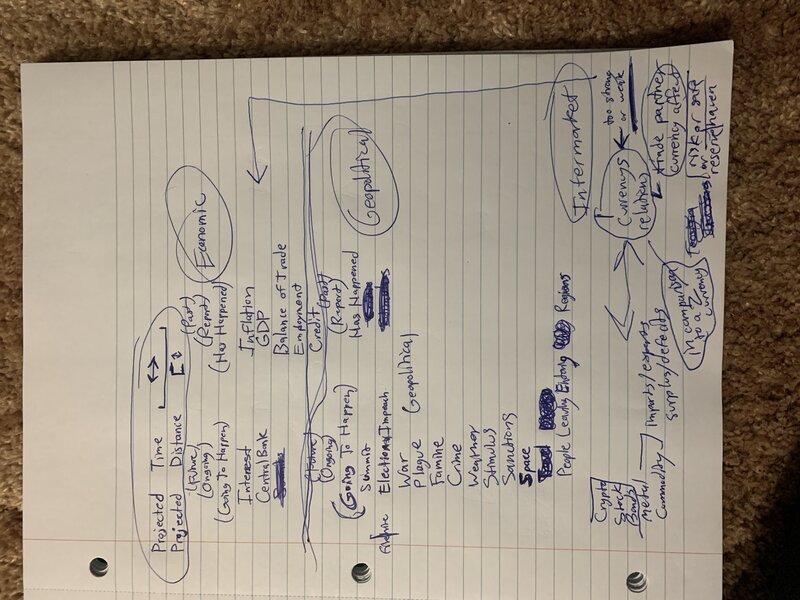 Projected Time
Projected Distance
(Future)
Ongoing)
(Past)
(Report)
Economic
(Going To Happen)
(Has Happened)
Interest
Inflation
Central Bank
GDP
Balance of Trade
Employment
Credit
(Future)
(Past)
(Ongoing)
(Report)
Geopolitical
(Going To Happen)
Has Happened
Summit
Election/Impeach
War
Geopolitical
Plague
Famine
Crime
Weather
Stimulus
Sanctions
Space
People Leaving Entering Regions
Intermarket
Crypto
Stock
Bonds
Metal
Commodity
Imports/exports
surplus/defects
Currencys
relations
too strong
or weak
trade partner
currency affect
In comparison
to a 2
currency
risk or safe
or haven
reserve